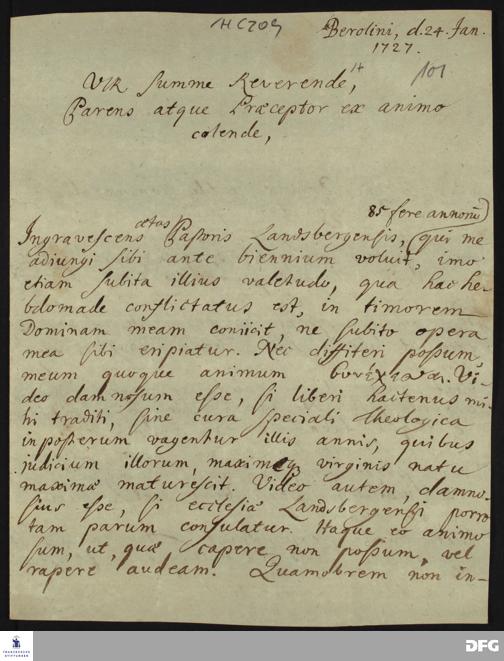 HC709
Berolini, d. 24. Jan.
1727.
101
Vir Summe Reverende,
Parens atque Præceptor ex animo
colende,
85 fere annorũ)
Ingravescens ætas Pastoris Landsbergensis, (qui me
adiungi sibi ante biennium voluit, imo
etiam subita illius valetudo, qua hac he-
bdomade conflictatus est, in timorem
Dominam meam coniicit, ne subito opera
mea sibi eripiatur. Nec diffiteri possum,
meum quoque animum Vi-
deo damnosum esse, si liberi hactenus mi-
hi traditi, sine cura speciali theologica
in posterum vagentur illis annis, quibus
judicium illorum, maximeqȝ virginis natu
maximæ maturescit. Video autem, damno-
sius esse, si ecclesiæ Landsbergensi porro
tam parum consulatur. Itaque eo animo
sum, ut, quæ capere non possum, vel
rapere audeam. Quamobrem non in-
FRANCKESCHE STIFTUNGEN
DFG